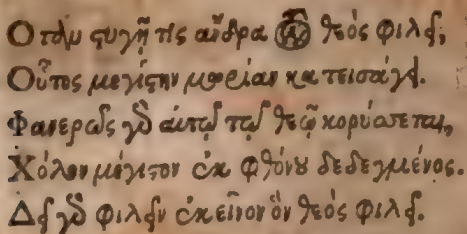 Ὅταν στυγῇ τὶς ἄνδρα τὸν θεὸς φιλεῖ,
Οὗτος μεγίστην μωρίαν κατεισάγει.
Φανερῶς γὰρ αὐτῷ τῷ θεῷ κορύσσεται,
Χόλον μέγιστον ἐκ φθόνου δεδεγμένος.
Δεῖ γὰρ φιλεῖν ἐκεῖνον ὃν θεὸς φιλεῖ.